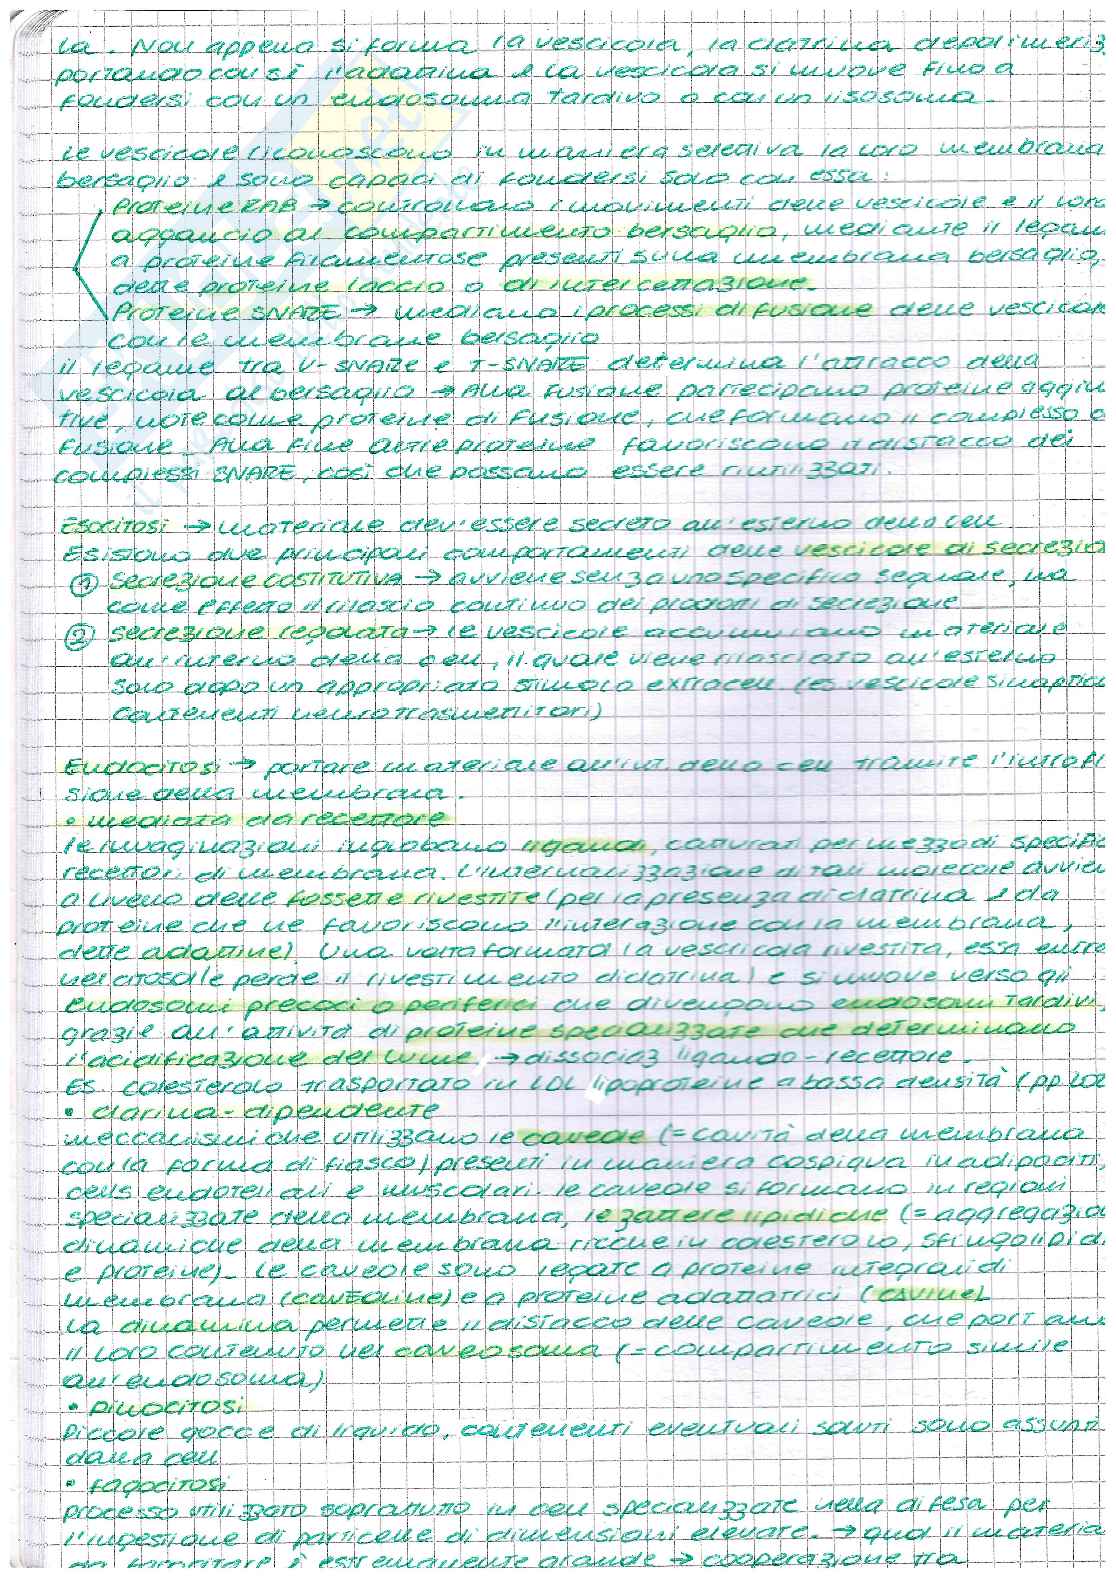 la. Non appena si forma la vescicola, la clatrina depolimeriz
portando con sé l'adattina e la vescicola si muove fino a
fondersi con un endosoma tardivo o con un lisosoma.
Le vescicole riconoscono in maniera selettiva la loro membrana
bersaglio e sono capaci di fondersi solo con essa:
Proteine RAB → controllano i movimenti delle vescicole e il loro
aggancio al compartimento bersaglio, mediante il legam
a proteine filamentose presenti sulla membrana bersaglio,
dette proteine laccio o di intercettazione.
Proteine SNARE → mediano i processi di fusione delle vescicole
con le membrane bersaglio
il legame tra V-SNARE e T-SNARE determina l'attracco della
vescicola al bersaglio → Alla fusione partecipano proteine aggiun
tive, note come proteine di fusione, che formano il complesso d
fusione. Alla fine altre proteine favoriscono il distacco dei
complessi SNARE, così che possano essere riutilizzati.
Esocitosi → materiale dev'essere secreto all'esterno della cell
Esistono due principali comportamenti delle vescicole di secrezio
① Secrezione costitutiva → avviene senza uno specifico segnale, ma
come effetto il rilascio continuo dei prodotti di secrezione
② secrezione regolata → le vescicole accumulano materiale
all'interno della cell, il quale viene rilasciato all'esterno
solo dopo un appropriato stimolo extracell (es vescicole sinaptich
contenenti neurotrasmettitori)
Endocitosi → portare materiale all'int. della cell tramite l'introfl
sione della membrana.
• mediata da recettore
le invaginazioni inglobano ligandi, catturati per mezzo di specific
recettori di membrana. L'internalizzazione di tali molecole avvien
a livello delle fossette rivestite (per la presenza di clatrina e da
proteine che ne favoriscono l'interazione con la membrana,
dette adattine). Una volta formata la vescicola rivestita, essa entra
nel citosol (e perde il rivestimento di clatrina) e si muove verso gli
endosomi precoci o periferici che divengono endosomi tardivi,
grazie all'attività di proteine specializzate che determinano
l'acidificazione del lume, → dissociaz ligando-recettore.
Es. colesterolo trasportato in LDL lipoproteine a bassa densità (pp LDL
• clarina-dipendente
meccanismi che utilizzano le caveole (= cavità della membrana
con la forma di fiasco) presenti in maniera cospiqua in adipociti,
cells endoteliali e muscolari. le caveole si formano in regioni
specializzate della membrana, le zattere lipidiche (= aggregazio
dinamiche della membrana ricche in colesterolo, sfingolipidi
e proteine). Le caveole sono legate a proteine integrali di
membrana (caveoline) e a proteine adattatrici (cavine).
La dinamina permette il distacco delle caveole, che portano
il loro contenuto nel caveosoma (= compartimento simile
all'endosoma)
• pinocitosi
Piccole gocce di liquido, contenenti eventuali soluti sono assunti
dalla cell
• fagocitosi
processo utilizzato soprattutto in cell specializzate nella difesa per
l'ingestione di particelle di dimensioni elevate. → qual il materia
da fagocitare è estremamente grande → cooperazione tra